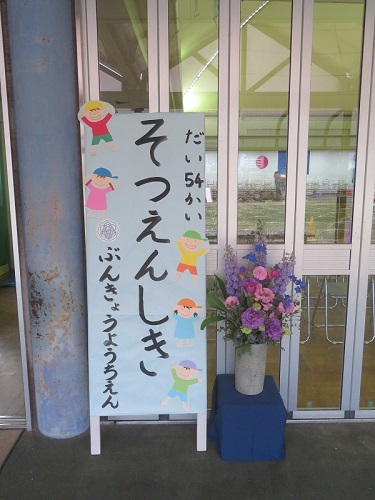 だい54かい
そつえんしき
ぶんきょうようちえん